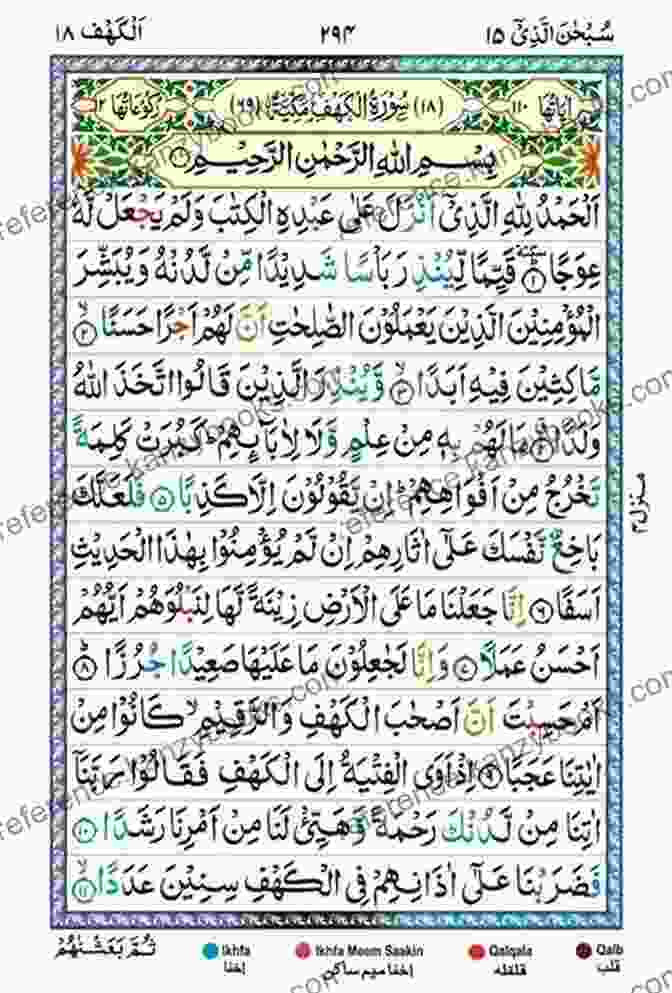 سُبْحٰنَ الَّذِیْۤ ۱۵
۲۹۴
اَلْكَهْف ۱۸
اٰیَاتُهَا ۱۱۰
(۱۸) سُوْرَةُ الْكَهْفِ مَكِّیَّةٌ (۶۹)
رُكُوْعَاتُهَا ۱۲
بِسْمِ اللّٰهِ الرَّحْمٰنِ الرَّحِیْمِ
اَلْحَمْدُ لِلّٰهِ الَّذِیْۤ اَنْزَلَ عَلٰی عَبْدِهِ الْكِتٰبَ وَلَمْ یَجْعَلْ لَّهٗ
عِوَجًا ۱ قَیِّمًا لِّیُنْذِرَ بَاْسًا شَدِیْدًا مِّنْ لَّدُنْهُ وَیُبَشِّرَ
الْمُؤْمِنِیْنَ الَّذِیْنَ یَعْمَلُوْنَ الصّٰلِحٰتِ اَنَّ لَهُمْ اَجْرًا حَسَنًا ۲
مَّاكِثِیْنَ فِیْهِ اَبَدًا ۳ وَّیُنْذِرَ الَّذِیْنَ قَالُوا اتَّخَذَ اللّٰهُ
وَلَدًا ۴ مَا لَهُمْ بِهٖ مِنْ عِلْمٍ وَّلَا لِاٰبَآىِٕهِمْ ؕ كَبُرَتْ كَلِمَةً
تَخْرُجُ مِنْ اَفْوَاهِهِمْ ؕ اِنْ یَّقُوْلُوْنَ اِلَّا كَذِبًا ۵ فَلَعَلَّكَ
بَاخِعٌ نَّفْسَكَ عَلٰۤی اٰثَارِهِمْ اِنْ لَّمْ یُؤْمِنُوْا بِهٰذَا الْحَدِیْثِ
اَسَفًا ۶ اِنَّا جَعَلْنَا مَا عَلَی الْاَرْضِ زِیْنَةً لَّهَا لِنَبْلُوَهُمْ اَیُّهُمْ
اَحْسَنُ عَمَلًا ۷ وَاِنَّا لَجٰعِلُوْنَ مَا عَلَیْهَا صَعِیْدًا جُرُزًا ۸
اَمْ حَسِبْتَ اَنَّ اَصْحٰبَ الْكَهْفِ وَالرَّقِیْمِ ۙ كَانُوْا مِنْ
اٰیٰتِنَا عَجَبًا ۹ اِذْ اَوَی الْفِتْیَةُ اِلَی الْكَهْفِ فَقَالُوْا رَبَّنَاۤ
اٰتِنَا مِنْ لَّدُنْكَ رَحْمَةً وَّهَیِّئْ لَنَا مِنْ اَمْرِنَا رَشَدًا ۱۰
فَضَرَبْنَا عَلٰۤی اٰذَانِهِمْ فِی الْكَهْفِ سِنِیْنَ عَدَدًا ۱۱
منزل۴
ثُمَّ بَعَثْنٰهُمْ
Ikhfa
اِخفا
Ikhfa Meem Saakin
اِخفا میم ساکن
Qalqala
قلقلہ
Qalb
قلب
reference.kanzybooks.com